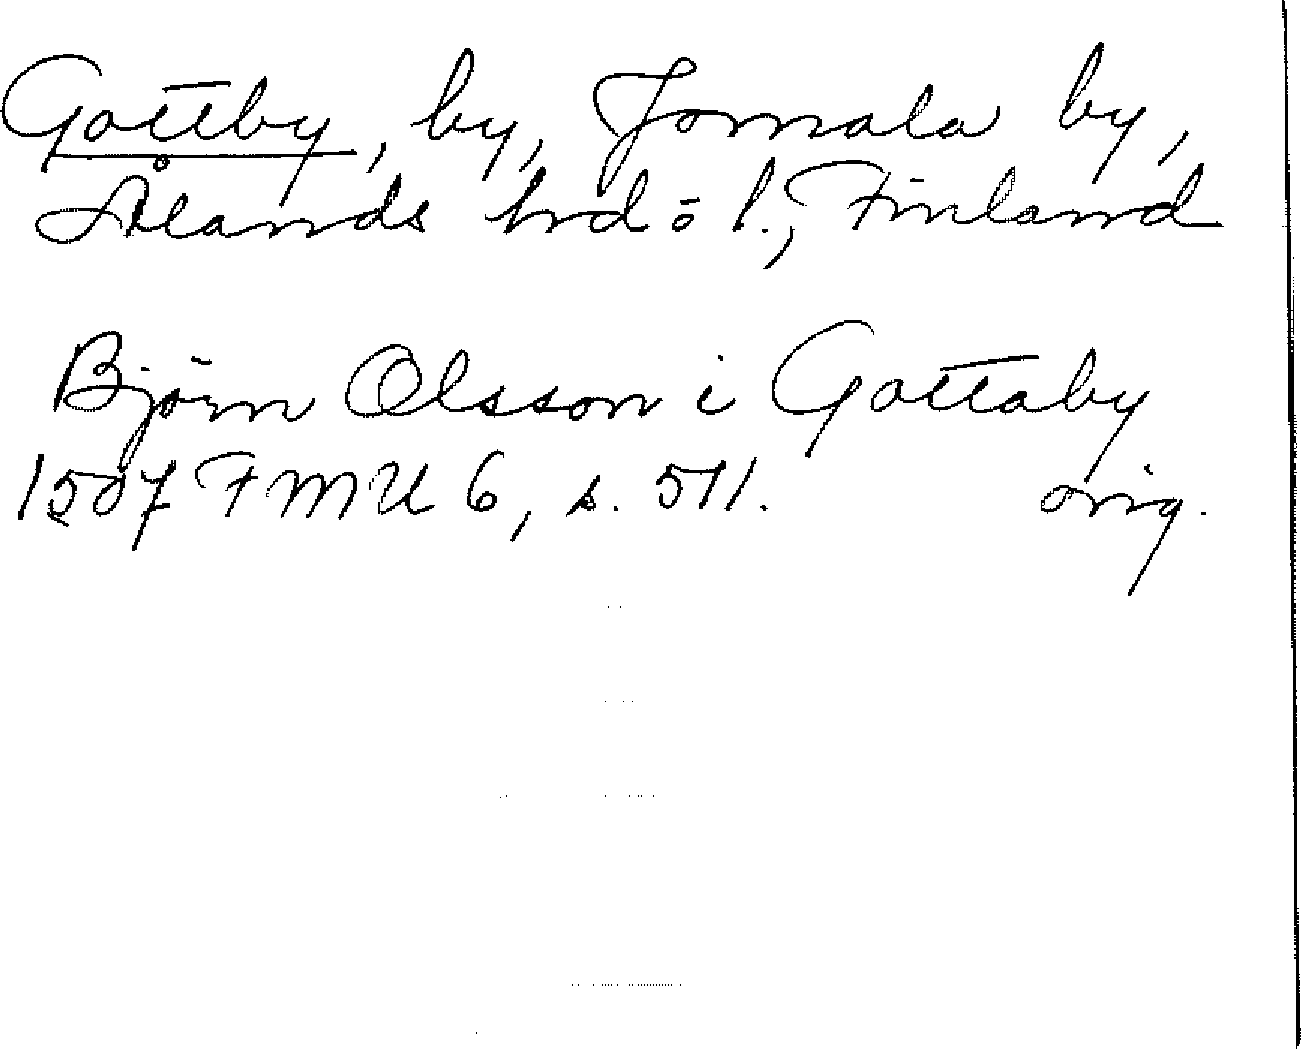 Gottby, by, Jomala by,
Ålands hrd o l., Finland
Björn Olsson i Gottaby
1507 FMU 6, s. 511. orig.